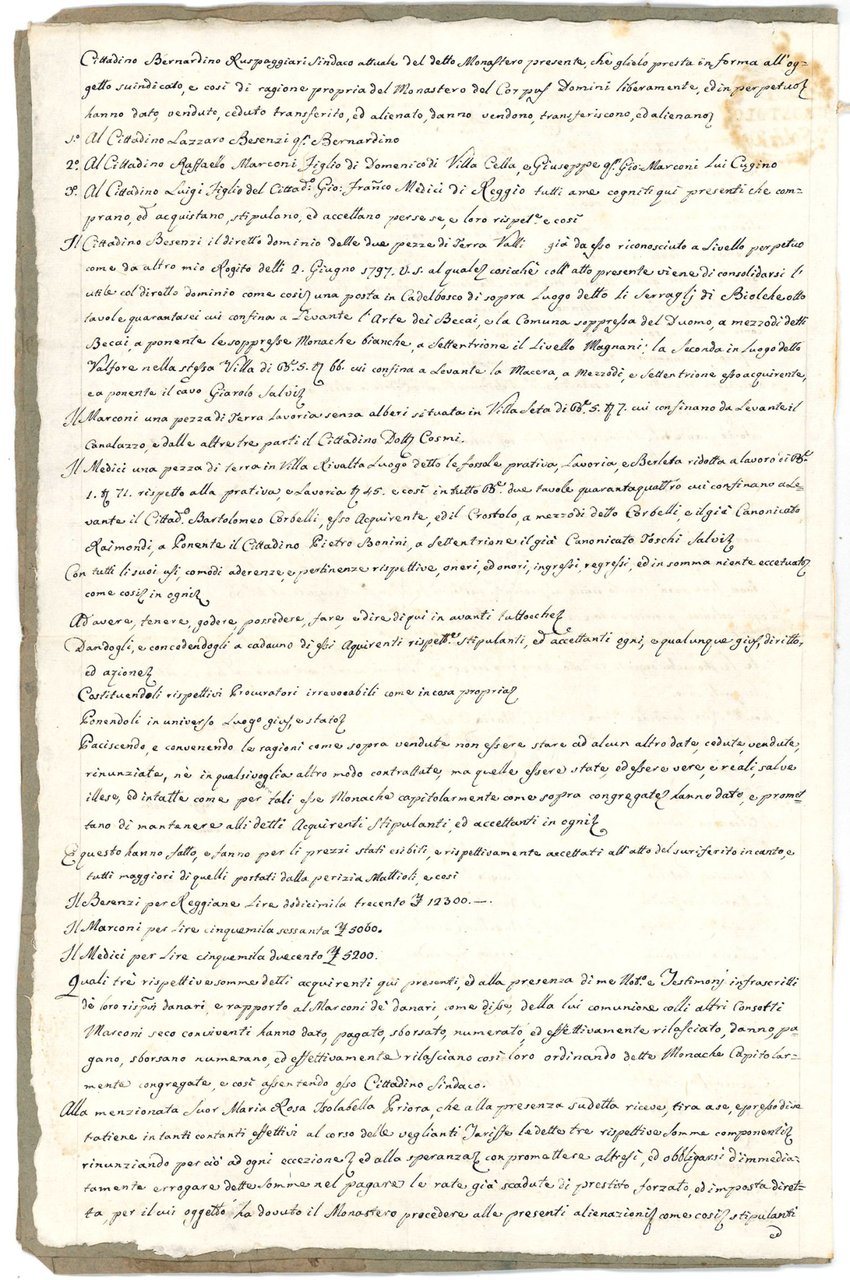 Cittadino Bernardino Ruspaggiari Sindaco attuale del detto Monastero presente, che glielo presta in forma all'og=
getto suindicato, e così di ragione propria del Monastero del Corpus Domini liberamente, ed in perpetuo
hanno dato, venduto, ceduto transferito, ed alienato, danno vendono, transferiscono, ed alienano
1.° Al Cittadino Lazzaro Besenzi q. Bernardino
2.° Al Cittadino Raffaello Marconi Figlio di Domenico di Villa Cella, e Giuseppe q. Gio: Marconi Lui Cugino
3.° Al Cittadino Luigi Figlio del Cittad.° Gio: Fran.co Medici di Reggio tutti a me cogniti qui presenti che com=
prano, ed acquistano, stipulano, ed accettano per se se, e loro rispet.e e così
Il Cittadino Besenzi il diretto dominio delle due pezze di Terra Valli già da esso riconosciuto a Livello perpetuo
come da altro mio Rogito delli 2. Giugno 1797. V. S. al quale cosichè coll'atto presente viene di consolidarsi l'
utile col diretto dominio come così una posta in Cadelbosco di sopra Luogo detto li Serraglj di Biolche otto
tavole quarantasei cui confina a Levante l'Arte dei Becai, e la Comuna soppressa del Duomo, a mezzodì detti
Becai a ponente le soppresse Monache bianche, a Settentrione il Livello Magnani; la Seconda in Luogo detto
Valfore nella stessa Villa di B.e 5. t 66. cui confina a Levante la Macera, a Mezzodì, e Settentrione esso acquirente,
e a ponente il cavo Giarolo Salvi
Il Marconi una pezza di Terra Lavoria senza alberi situata in Villa Seta di B.e 5. t 7. cui confinano da Levante il
Canalazzo, e dalle altre tre parti il Cittadino Dott. Cosmi.
Il Medici una pezza di terra in Villa Rivalta Luogo detto le fossole prativa, Lavoria, e Berleta ridotta a lavoro di B.e
1. t 71. rispetto alla prativa, e Lavoria t 45. e così in tutto B.e due tavole quarantaquattro cui confinano a Le=
vante il Cittad.° Bartolomeo Corbelli, esso Acquirente, ed il Crostolo, a mezzodì detto Corbelli, e il già Canonicato
Raimondi, a Ponente il Cittadino Pietro Bonini, a Settentrione il già Canonicato Toschi Salvi
Con tutti li suoi usi, comodi aderenze, e pertinenze rispettive, oneri, ed onori, ingressi, regressi, ed in somma niente eccetuato
come così in ogni
Ad avere, tenere, godere, possedere, fare e dire di qui in avanti tuttocche
Dandogli, e concedendogli a cadauno di essi Aquirenti rispett. stipulanti, ed accettanti ogni, e qualunque gius, diritto,
ed azione
Costituendoli rispettivi Procuratori irrevocabili come in cosa propria
Ponendoli in universo Luogo gius, e stato
Paciscendo, e convenendo le ragioni come sopra vendute non essere stare ad alcun altro date, cedute, vendute,
rinunziate, nè in qualsivoglia altro modo contrattate, ma quelle essere state, ed essere vere, e reali, salve
illese, ed intatte come per tali esse Monache capitolarmente come sopra congregate hanno dato, e promet=
tano di mantenere alli detti Acquirenti Stipulanti, ed accettanti in ogni
E questo hanno fatto, e fanno per li prezzi stati esibiti, e rispettivamente accettati all'atto del suriferito incanto, e
tutti maggiori di quelli portati dalla perizia Mattioli, e così
Il Besenzi per Reggiane Lire dodicimila trecento £ 12300.—.
Il Marconi per Lire cinquemila sessanta £ 5060.
Il Medici per Lire cinquemila duecento £ 5200.
Quali trè rispettive somme detti acquirenti qui presenti, ed alla presenza di me Not.° e Testimonj infrascritti
de loro risp. danari, e rapporto al Marconi de' danari, come disse, della lui comunione colli altri Consorti
Marconi seco conviventi hanno dato, pagato, sborsato, numerato, ed effettivamente rilasciato, danno, pa=
gano, sborsano numerano, ed effettivamente rilasciano così loro ordinando dette Monache Capitolar=
mente congregate, e così assentendo esso Cittadino Sindaco.
Alla menzionata Suor Maria Rosa Isolabella Priora, che alla presenza sudetta riceve, tira a se, e presso di se
ratiene in tanti contanti effettivi al corso delle veglianti Tariffe le dette tre rispettive Somme componenti
rinunziando per ciò ad ogni eccezione, ed alla speranza con promettere altresì, ed obbligarsi d'immedia=
tamente errogare dette Somme nel pagare le rate già scadute di prestito forzato, ed imposta diret=
ta, per il cui oggetto ha dovuto il Monastero procedere alle presenti alienazioni come così stipulanti
ed